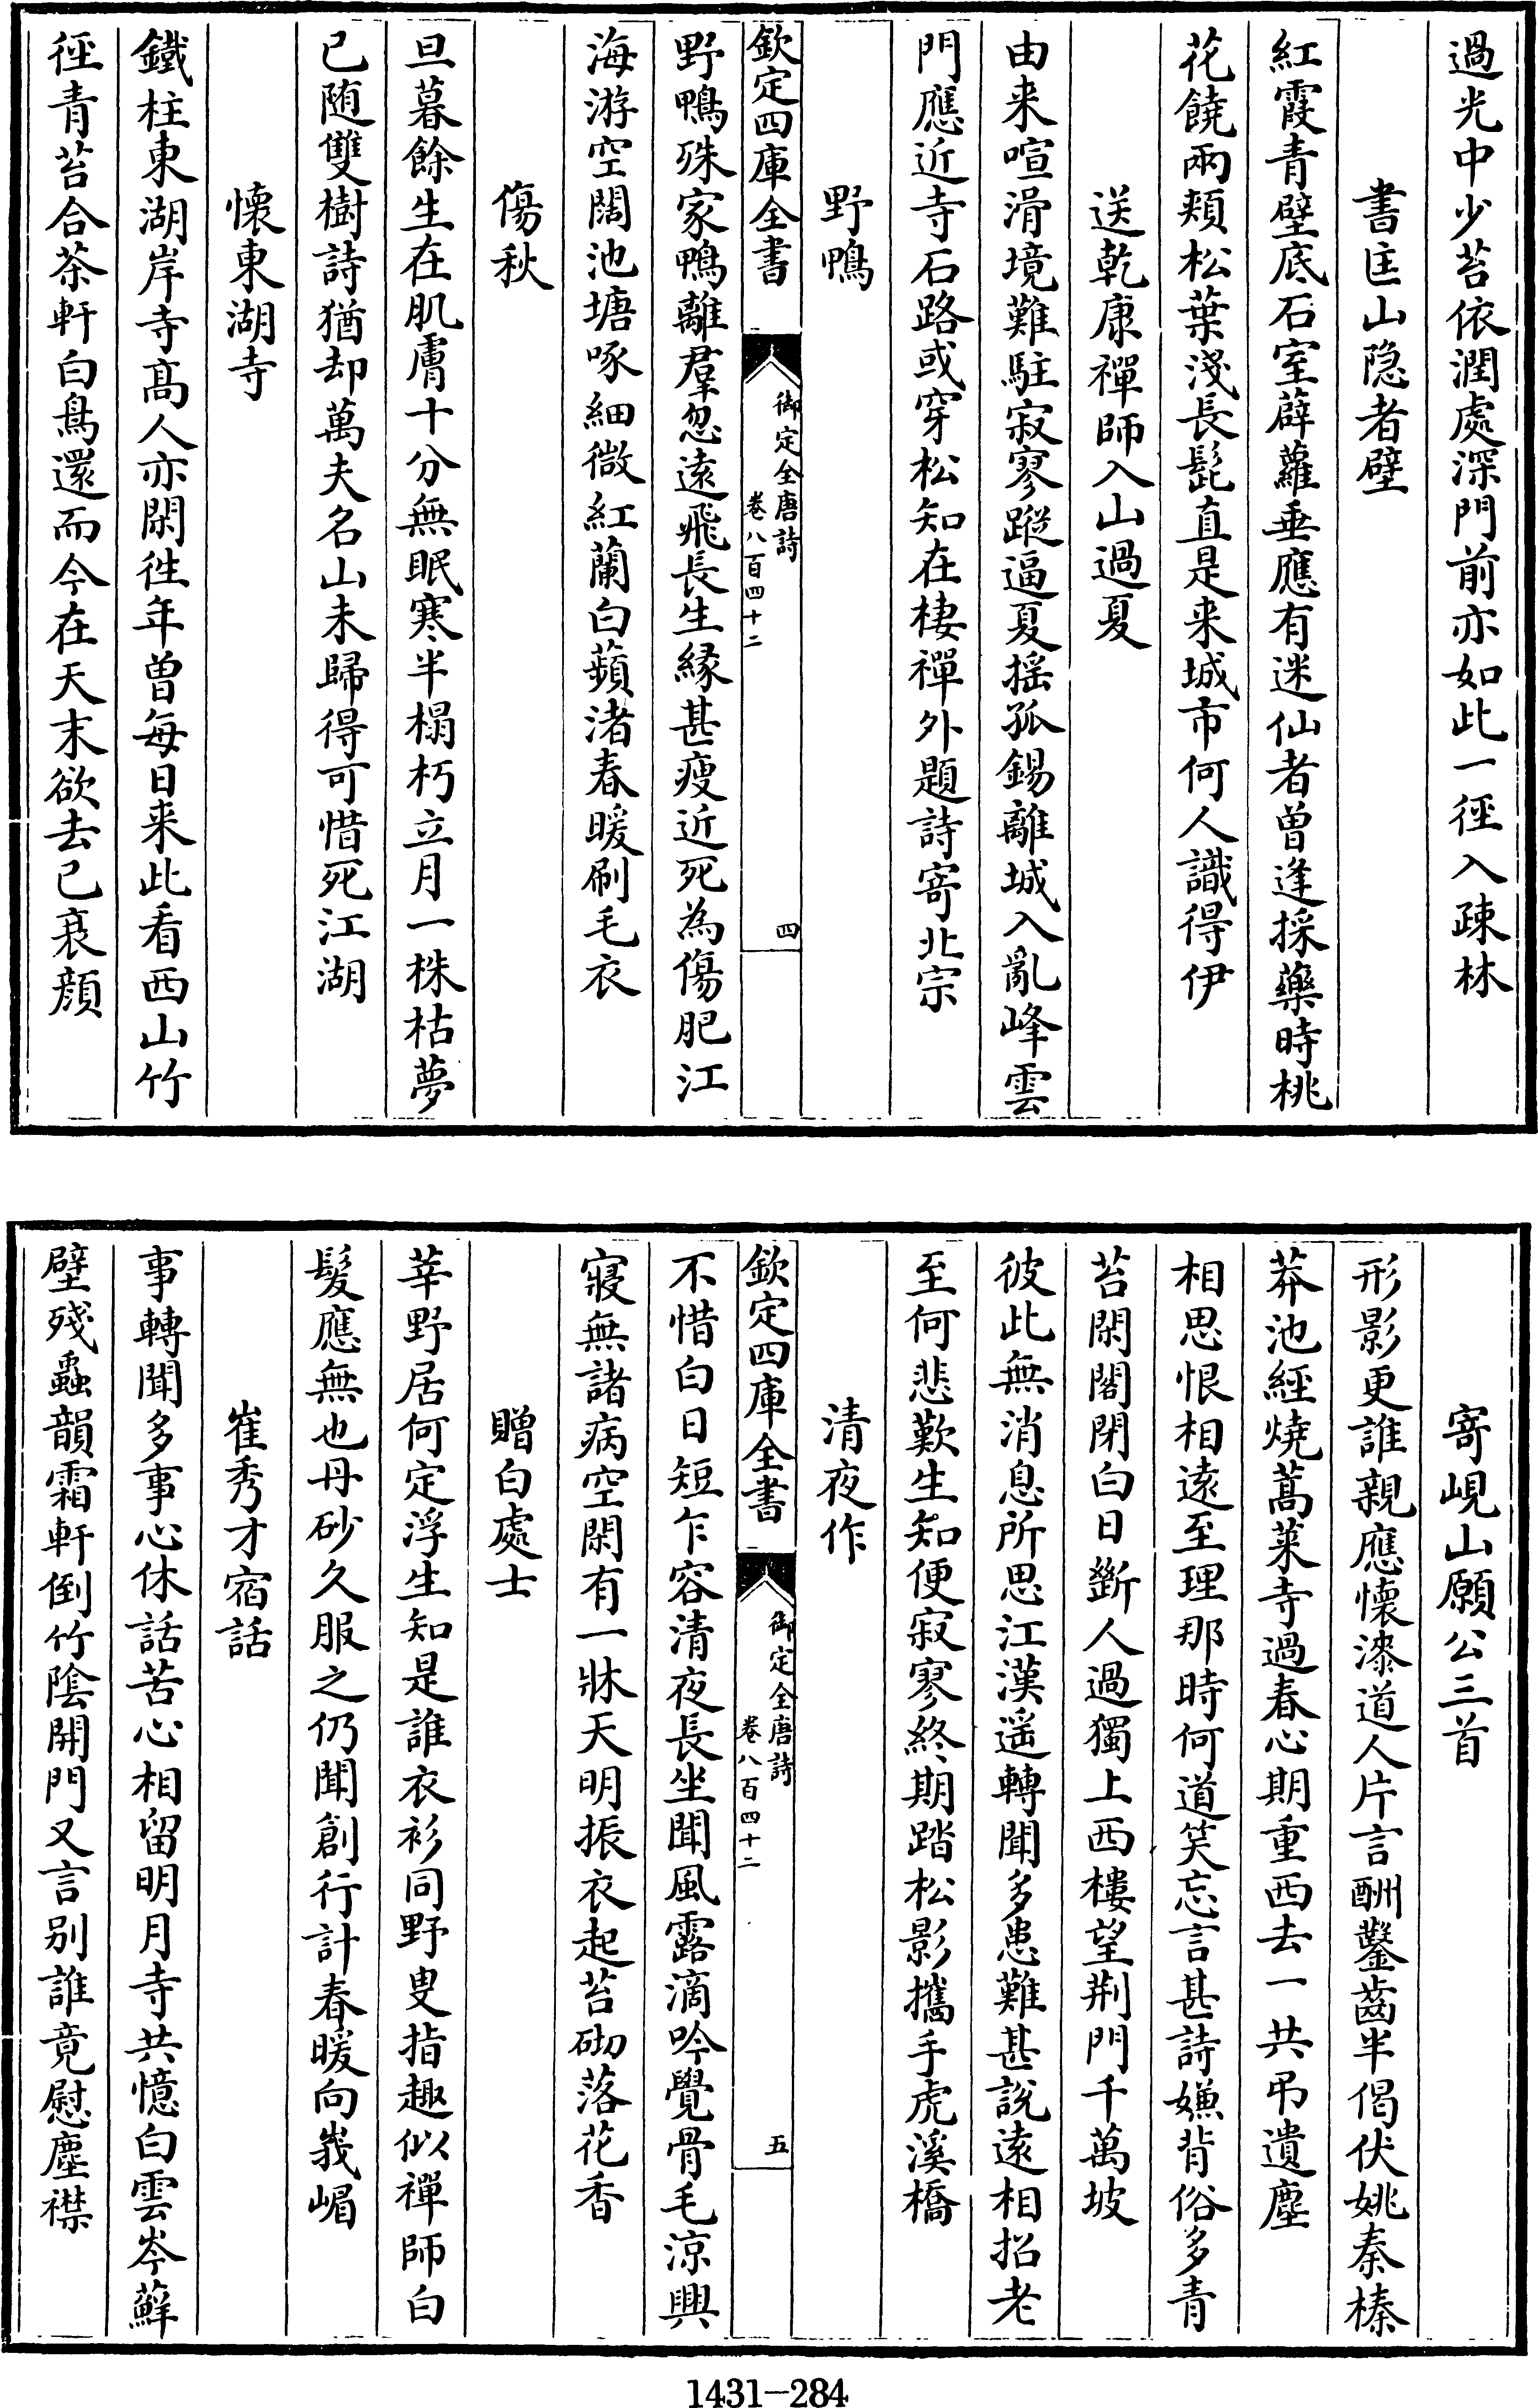 過光中少苔依潤處深門前亦如此一徑入疎林
書匡山隐者壁
紅霞青壁底石室薜蘿垂應有迷仙者曽逢採藥時桃
花饒兩頰松葉淺長髭直是来城市何人識得伊
送乾康禪師入山過夏
由来喧滑境難駐寂寥蹤逼夏揺孤錫離城入亂峰雲
門應近寺石路或穿松知在棲禪外題詩寄北宗
野鴨
欽定四庫全書
御定全唐詩
卷八百四十二
四
野鴨殊家鴨離羣忽遠飛長生縁甚瘦近死為傷肥江
海游空闊池塘啄細微紅蘭白蘋渚春暖刷毛衣
傷秋
旦暮餘生在肌膚十分無眠寒半榻朽立月一株枯夢
已随雙樹詩猶却萬夫名山未歸得可惜死江湖
懷東湖寺
鐵柱東湖岸寺髙人亦閑徃年曽每日来此看西山竹
徑青苔合茶軒白鳥還而今在天末欲去已衰顔
寄峴山願公三首
形影更誰親應懷漆道人片言酬鑿齒半偈伏姚秦榛
莽池經燒蒿萊寺過春心期重西去一共弔遺塵
相思恨相遠至理那時何道笑忘言甚詩嫌背俗多青
苔閑閣閉白日斷人過獨上西樓望荆門千萬坡
彼此無消息所思江漢遥轉聞多患難甚説遠相招老
至何悲歎生知便寂寥終期踏松影攜手虎溪橋
清夜作
欽定四庫全書
御定全唐詩
卷八百四十二
五
不惜白日短乍容清夜長坐聞風露滴吟覺骨毛涼興
寢無諸病空閑有一牀天明振衣起苔砌落花香
贈白處士
莘野居何定浮生知是誰衣衫同野叟指趣似禪師白
髮應無也丹砂久服之仍聞創行計春暖向峩嵋
崔秀才宿話
事轉聞多事心休話苦心相留明月寺共憶白雲岑蘚
壁殘蟲韻霜軒倒竹陰開門又言别誰竟慰塵襟
1431-284